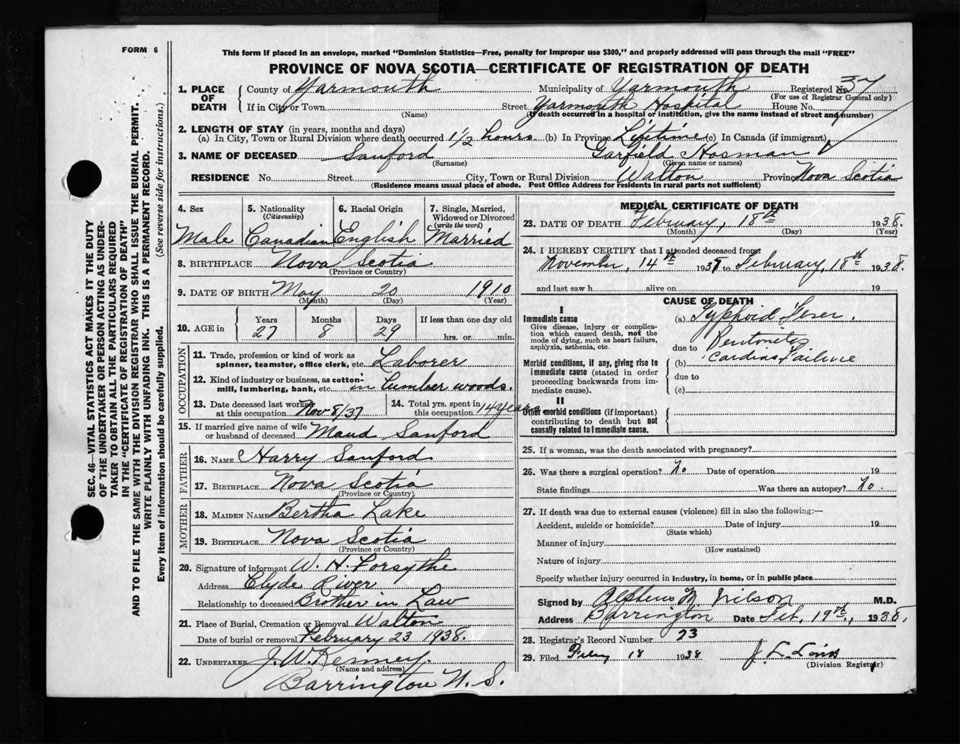 FORM 6
This form if placed in an envelope, marked "Dominion Statistics—Free, penalty for improper use $300," and properly addressed will pass through the mail "FREE"
PROVINCE OF NOVA SCOTIA—CERTIFICATE OF REGISTRATION OF DEATH
SEC. 46—VITAL STATISTICS ACT MAKES IT THE DUTY
OF THE UNDERTAKER OR PERSON ACTING AS UNDER-
TAKER TO OBTAIN ALL THE PARTICULARS REQUIRED
IN THE "CERTIFICATE OF REGISTRATION OF DEATH"
AND TO FILE THE SAME WITH THE DIVISION REGISTRAR WHO SHALL ISSUE THE BURIAL PERMIT.
WRITE PLAINLY WITH UNFADING INK. THIS IS A PERMANENT RECORD.
Every item of information should be carefully supplied. (See reverse side for instructions.)
1. PLACE OF DEATH County of Yarmouth Municipality of Yarmouth Registered No. 37
(For use of Registrar General only)
If in City or Town Street Yarmouth Hospital House No.
(Name) (If death occurred in a hospital or institution, give the name instead of street and number)
2. LENGTH OF STAY (in years, months and days)
(a) In City, Town or Rural Division where death occurred 1 1/2 hours (b) In Province Lifetime (c) In Canada (if immigrant)
3. NAME OF DECEASED Sanford Garfield Hosman
(Surname) (Given name or names)
RESIDENCE No. Street City, Town or Rural Division Walton Province Nova Scotia
(Residence means usual place of abode. Post Office Address for residents in rural parts not sufficient)
4. Sex 5. Nationality (Citizenship) 6. Racial Origin 7. Single, Married, Widowed or Divorced (write the word)
Male Canadian English Married
8. BIRTHPLACE Nova Scotia
(Province or Country)
9. DATE OF BIRTH May 20 1910
(Month) (Day) (Year)
10. AGE in Years Months Days If less than one day old
27 8 29 hrs. or min.
OCCUPATION
11. Trade, profession or kind of work as spinner, teamster, office clerk, etc. Laborer
12. Kind of industry or business, as cotton-mill, lumbering, bank, etc. in Lumber woods.
13. Date deceased last worked at this occupation Nov 8/37 14. Total yrs. spent in this occupation 14 years
15. If married give name of wife or husband of deceased Maud Sanford
FATHER
16. NAME Harry Sanford
17. BIRTHPLACE Nova Scotia
(Province or Country)
MOTHER
18. MAIDEN NAME Bertha Lake
19. BIRTHPLACE Nova Scotia
(Province or Country)
20. Signature of informant W. H. Forsythe
Address Clyde River
Relationship to deceased Brother in Law
21. Place of Burial, Cremation or Removal Walton
Date of burial or removal February 23 1938.
22. UNDERTAKER J. W. Kenney.
(Name and address)
Barrington N.S.
MEDICAL CERTIFICATE OF DEATH
23. DATE OF DEATH February, 18th 1938.
(Month) (Day) (Year)
24. I HEREBY CERTIFY that I attended deceased from:
November, 14th 1937 to February, 18th 1938.
and last saw h alive on 19
CAUSE OF DEATH
I
Immediate cause
Give disease, injury or complication which caused death, not the mode of dying, such as heart failure, asphyxia, asthenia, etc.
(a) Typhoid Fever.
due to
Morbid conditions, if any, giving rise to immediate cause (stated in order proceeding backwards from immediate cause).
(b) Cardiac Failure
due to
(c)
II
Other morbid conditions (if important) contributing to death but not causally related to immediate cause.
25. If a woman, was the death associated with pregnancy?
26. Was there a surgical operation? No Date of operation 19
State findings Was there an autopsy? No.
27. If death was due to external causes (violence) fill in also the following:—
Accident, suicide or homicide? Date of injury 19
(State which)
Manner of injury
(How sustained)
Nature of injury
Specify whether injury occurred in industry, in home, or in public place
Signed by Wilson M.D.
Address Barrington Date Feb. 19th, 1938.
28. Registrar's Record Number 23
29. Filed 18 1938
(Division Registrar)